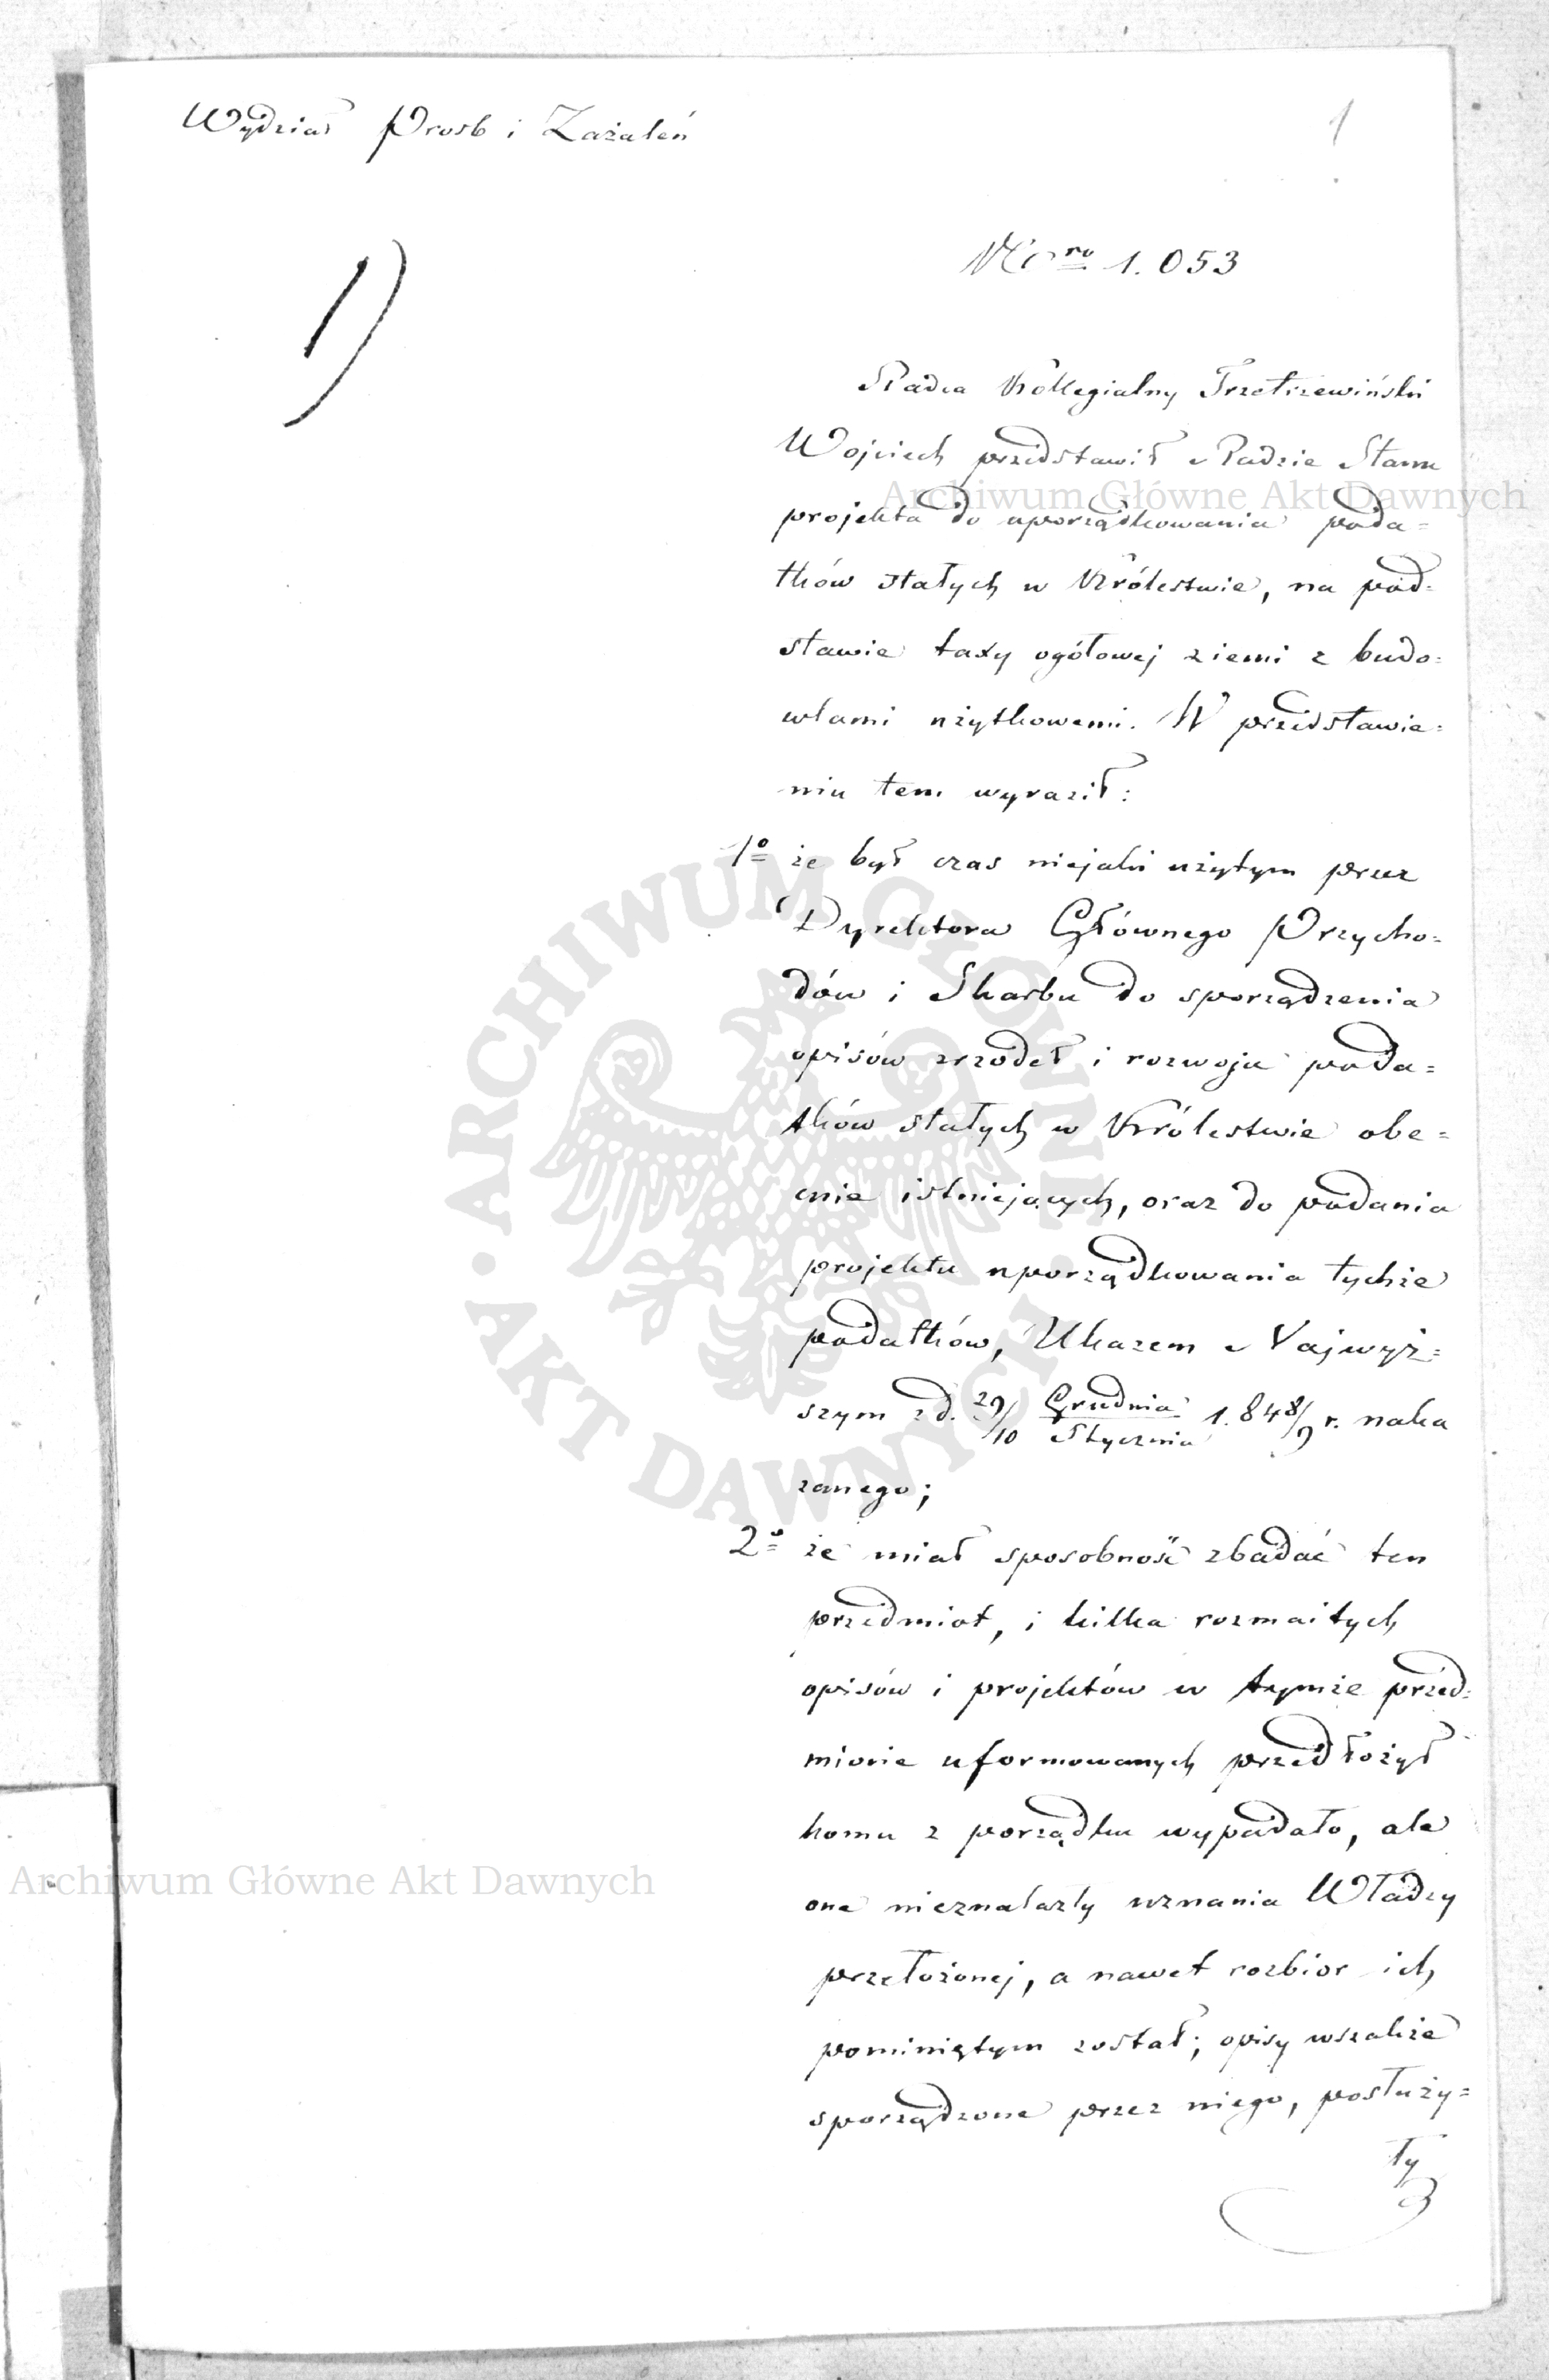 Wydział Prosb i Zażaleń
1
1)
Nro 1.053
Radca Kollegialny Trzetrzewiński
Wojciech przedstawił Radzie Stanu
Archiwum Główne Akt Dawnych
projekta do uporządkowania poda=
tków stałych w Królestwie, na pod=
stawie taxy ogółowej ziemi z budo=
wlami użytkowemi. W przedstawie=
niu tem wyraził:
1o że był czas niejaki użytym przez
Dyrektora Głównego Przycho=
dów i Skarbu do sporządzenia
opisów zrzodeł i rozwoju poda=
tków stałych w Królestwie obe=
cnie istniejących, oraz do podania
projektu uporządkowania tychże
podatków, Ukazem Najwyż=
szym z d. 29/10 Grudnia/Stycznia 1.848/9 r. naka
zanego;
ARCHIWUM GŁÓWNE · AKT DAWNYCH ·
2o że miał sposobność zbadać ten
przedmiot, i kilka rozmaitych
opisów i projektów w tymże przed=
miocie uformowanych przedłożył
komu z porządku wypadało, ale
one nieznalazły uznania Władzy
Archiwum Główne Akt Dawnych
przełożonej, a nawet rozbior ich
pominiętym został; opisy wszakże
sporządzone przez niego, posłuży=
ły